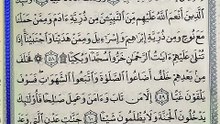 الَّذِينَ أَنْعَمَ اللَّهُ عَلَيْهِم مِّنَ النَّبِيِّـۧنَ مِن ذُرِّيَّةِ ءَادَمَ وَمِمَّنْ
مَعَ نُوحٍ وَمِن ذُرِّيَّةِ إِبْرَٰهِيمَ وَإِسْرَٰٓءِيلَ وَمِمَّنْ هَدَيْنَا وَاجْتَبَيْنَآ إِذَا
تُتْلَىٰ عَلَيْهِمْ ءَايَٰتُ الرَّحْمَٰنِ خَرُّوا۟ سُجَّدًا وَبُكِيًّا ۩ ٥٨ فَخَلَفَ
مِنۢ بَعْدِهِمْ خَلْفٌ أَضَاعُوا۟ الصَّلَوٰةَ وَاتَّبَعُوا۟ الشَّهَوَٰتِ فَسَوْفَ
يَلْقَوْنَ غَيًّا ٥٩ إِلَّا مَن تَابَ وَءَامَنَ وَعَمِلَ صَٰلِحًا فَأُو۟لَٰٓئِكَ
يَدْخُلُونَ الْجَنَّةَ وَلَا يُظْلَمُونَ شَيْـًٔا ٦٠ جَنَّٰتِ عَدْنٍ الَّتِي